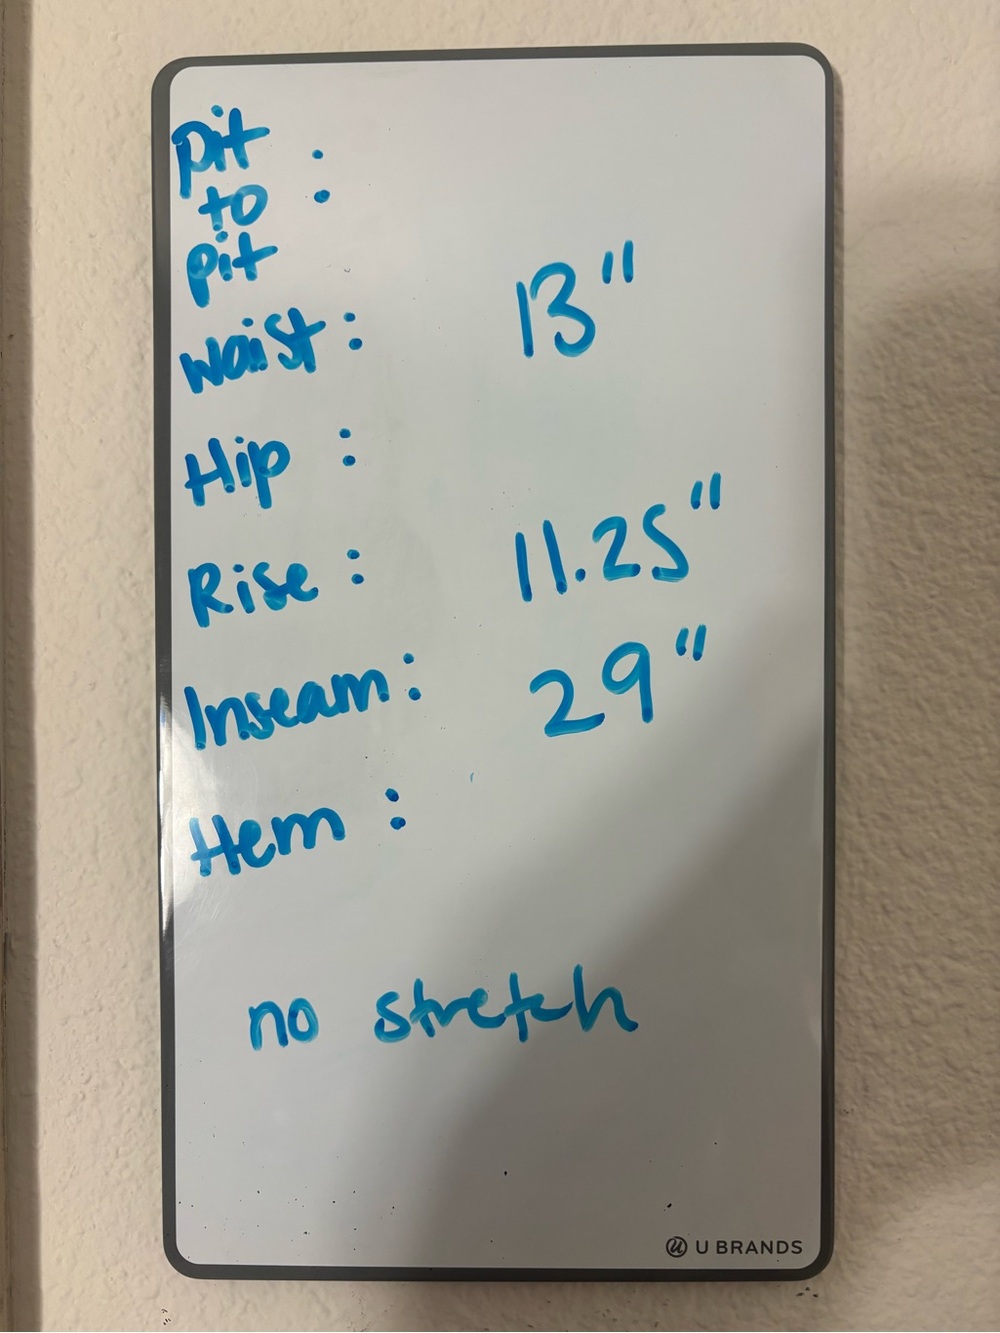 pit
to :
pit
waist: 13"
Hip :
Rise : 11.25"
Inseam: 29"
Hem :
no stretch
U BRANDS